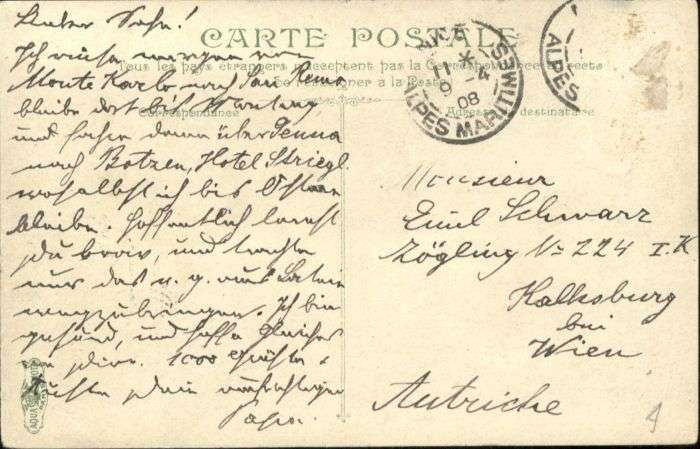 Lieber Sohn!
Ich reise morgen von
Monte Karlo nach San Remo
bleibe dort bis Montag,
und fahre dann über Genua
nach Botzen, Hotel Striegl
woselbst ich bis Ostern
bleibe. Hoffentlich lernst
du brav, und trachte
nur das n. g. aus Latein
wegzubringen. Ich bin
gesund, und hoffe Gleiches
von dir. 1000 Grüße
Küsse dein
Papa.
CARTE POSTALE
Tous les pays étrangers n'acceptent pas la Correspondance
se renseigner à la Poste
Correspondance
Adresse du destinataire
ALPES MARITIMES
08
ALPES
Monsieur
Emil Schwarz
Zögling No 224 I.K
Kalksburg
bei
Wien
Autriche
AQUA